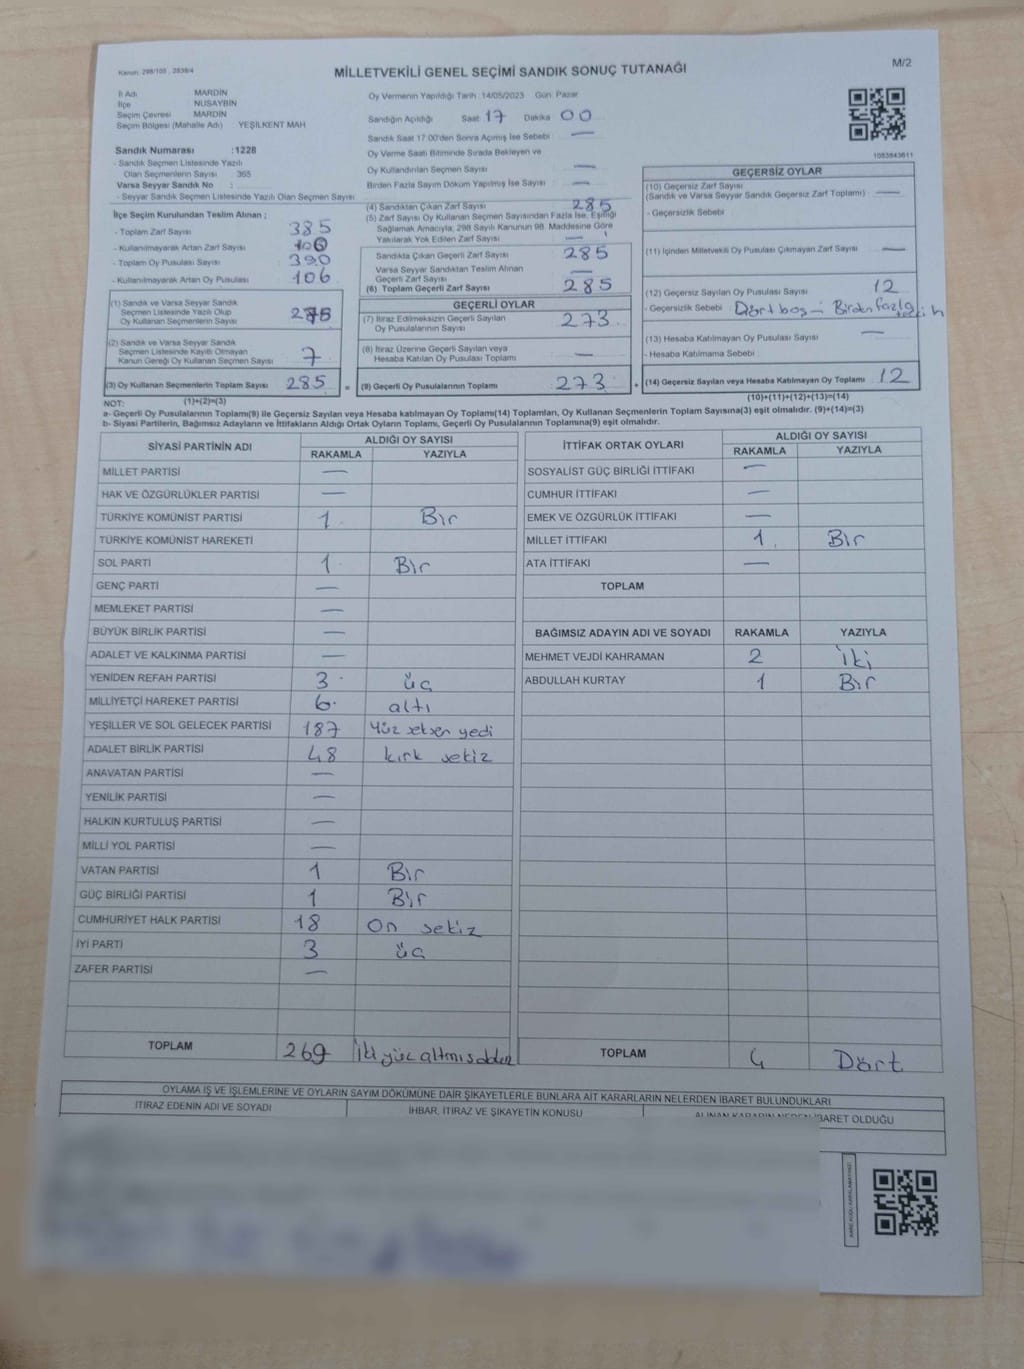 Kanun: 298/105 , 2839/4
MİLLETVEKİLİ GENEL SEÇİMİ SANDIK SONUÇ TUTANAĞI
M/2
İl Adı MARDİN
İlçe NUSAYBİN
Seçim Çevresi MARDİN
Seçim Bölgesi (Mahalle Adı) YEŞİLKENT MAH
Sandık Numarası :1228
- Sandık Seçmen Listesinde Yazılı
Olan Seçmenlerin Sayısı 365
Varsa Seyyar Sandık No :
- Seyyar Sandık Seçmen Listesinde Yazılı Olan Seçmen Sayısı
İlçe Seçim Kurulundan Teslim Alınan ;
- Toplam Zarf Sayısı 385
- Kullanılmayarak Artan Zarf Sayısı
- Toplam Oy Pusulası Sayısı 390
- Kullanılmayarak Artan Oy Pusulası 106
(1) Sandık ve Varsa Seyyar Sandık
Seçmen Listesinde Yazılı Olup
Oy Kullanan Seçmenlerin Sayısı
(2) Sandık ve Varsa Seyyar Sandık
Seçmen Listesinde Kayıtlı Olmayan
Kanun Gereği Oy Kullanan Seçmen Sayısı 7
(3) Oy Kullanan Seçmenlerin Toplam Sayısı 285 =
Oy Vermenin Yapıldığı Tarih 14/05/2023 Gün: Pazar
Sandığın Açıldığı Saat 17 Dakika 00
Sandık Saat 17:00'den Sonra Açımış İse Sebebi —
Oy Verme Saati Bitiminde Sırada Bekleyen ve
Oy Kullandırılan Seçmen Sayısı —
Birden Fazla Sayım Döküm Yapılmış İse Sayısı —
(4) Sandıktan Çıkan Zarf Sayısı 285
(5) Zarf Sayısı Oy Kullanan Seçmen Sayısından Fazla İse, Eşitliği
Sağlamak Amacıyla, 298 Sayılı Kanunun 98. Maddesine Göre
Yakılarak Yok Edilen Zarf Sayısı —
Sandıkta Çıkan Geçerli Zarf Sayısı 285
Varsa Seyyar Sandıktan Teslim Alınan
Geçerli Zarf Sayısı —
(6) Toplam Geçerli Zarf Sayısı 285
GEÇERLİ OYLAR
(7) İtiraz Edilmeksizin Geçerli Sayılan
Oy Pusulalarının Sayısı 273
(8) İtiraz Üzerine Geçerli Sayılan veya
Hesaba Katılan Oy Pusulası Toplamı —
(9) Geçerli Oy Pusulalarının Toplamı 273 +
1083843611
GEÇERSİZ OYLAR
(10) Geçersiz Zarf Sayısı
(Sandık ve Varsa Seyyar Sandık Geçersiz Zarf Toplamı) —
- Geçersizlik Sebebi
(11) İçinden Milletvekili Oy Pusulası Çıkmayan Zarf Sayısı —
(12) Geçersiz Sayılan Oy Pusulası Sayısı 12
- Geçersizlik Sebebi Dört boş - Birden fazla
(13) Hesaba Katılmayan Oy Pusulası Sayısı —
- Hesaba Katılmama Sebebi
(14) Geçersiz Sayılan veya Hesaba Katılmayan Oy Toplamı 12
NOT: (1)+(2)=(3)
(10)+(11)+(12)+(13)=(14)
a- Geçerli Oy Pusulalarının Toplamı(9) ile Geçersiz Sayılan veya Hesaba katılmayan Oy Toplamı(14) Toplamları, Oy Kullanan Seçmenlerin Toplam Sayısına(3) eşit olmalıdır. (9)+(14)=(3)
b- Siyasi Partilerin, Bağımsız Adayların ve İttifakların Aldığı Oyların Toplamı, Geçerli Oy Pusulalarının Toplamına(9) eşit olmalıdır.
SİYASİ PARTİNİN ADI ALDIĞI OY SAYISI
RAKAMLA YAZIYLA
MİLLET PARTİSİ —
HAK VE ÖZGÜRLÜKLER PARTİSİ —
TÜRKİYE KOMÜNİST PARTİSİ 1 Bir
TÜRKİYE KOMÜNİST HAREKETİ
SOL PARTİ 1 Bir
GENÇ PARTİ —
MEMLEKET PARTİSİ —
BÜYÜK BİRLİK PARTİSİ —
ADALET VE KALKINMA PARTİSİ —
YENİDEN REFAH PARTİSİ 3 üç
MİLLİYETÇİ HAREKET PARTİSİ 6 altı
YEŞİLLER VE SOL GELECEK PARTİSİ 187 Yüz seksen yedi
ADALET BİRLİK PARTİSİ 48 kırk sekiz
ANAVATAN PARTİSİ —
YENİLİK PARTİSİ —
HALKIN KURTULUŞ PARTİSİ —
MİLLİ YOL PARTİSİ —
VATAN PARTİSİ 1 Bir
GÜÇ BİRLİĞİ PARTİSİ 1 Bir
CUMHURİYET HALK PARTİSİ 18 On sekiz
İYİ PARTİ 3 üç
ZAFER PARTİSİ —
TOPLAM 269 İki yüz altmış dokuz
İTTİFAK ORTAK OYLARI ALDIĞI OY SAYISI
RAKAMLA YAZIYLA
SOSYALİST GÜÇ BİRLİĞİ İTTİFAKI —
CUMHUR İTTİFAKI —
EMEK VE ÖZGÜRLÜK İTTİFAKI —
MİLLET İTTİFAKI 1 Bir
ATA İTTİFAKI —
TOPLAM
BAĞIMSIZ ADAYIN ADI VE SOYADI RAKAMLA YAZIYLA
MEHMET VEJDİ KAHRAMAN 2 İki
ABDULLAH KURTAY 1 Bir
TOPLAM 4 Dört
OYLAMA İŞ VE İŞLEMLERİNE VE OYLARIN SAYIM DÖKÜMÜNE DAİR ŞİKAYETLERLE BUNLARA AİT KARARLARIN NELERDEN İBARET BULUNDUKLARI
İTİRAZ EDENİN ADI VE SOYADI İHBAR, İTİRAZ VE ŞİKAYETİN KONUSU ALINAN KARARIN NEDEN İBARET OLDUĞU